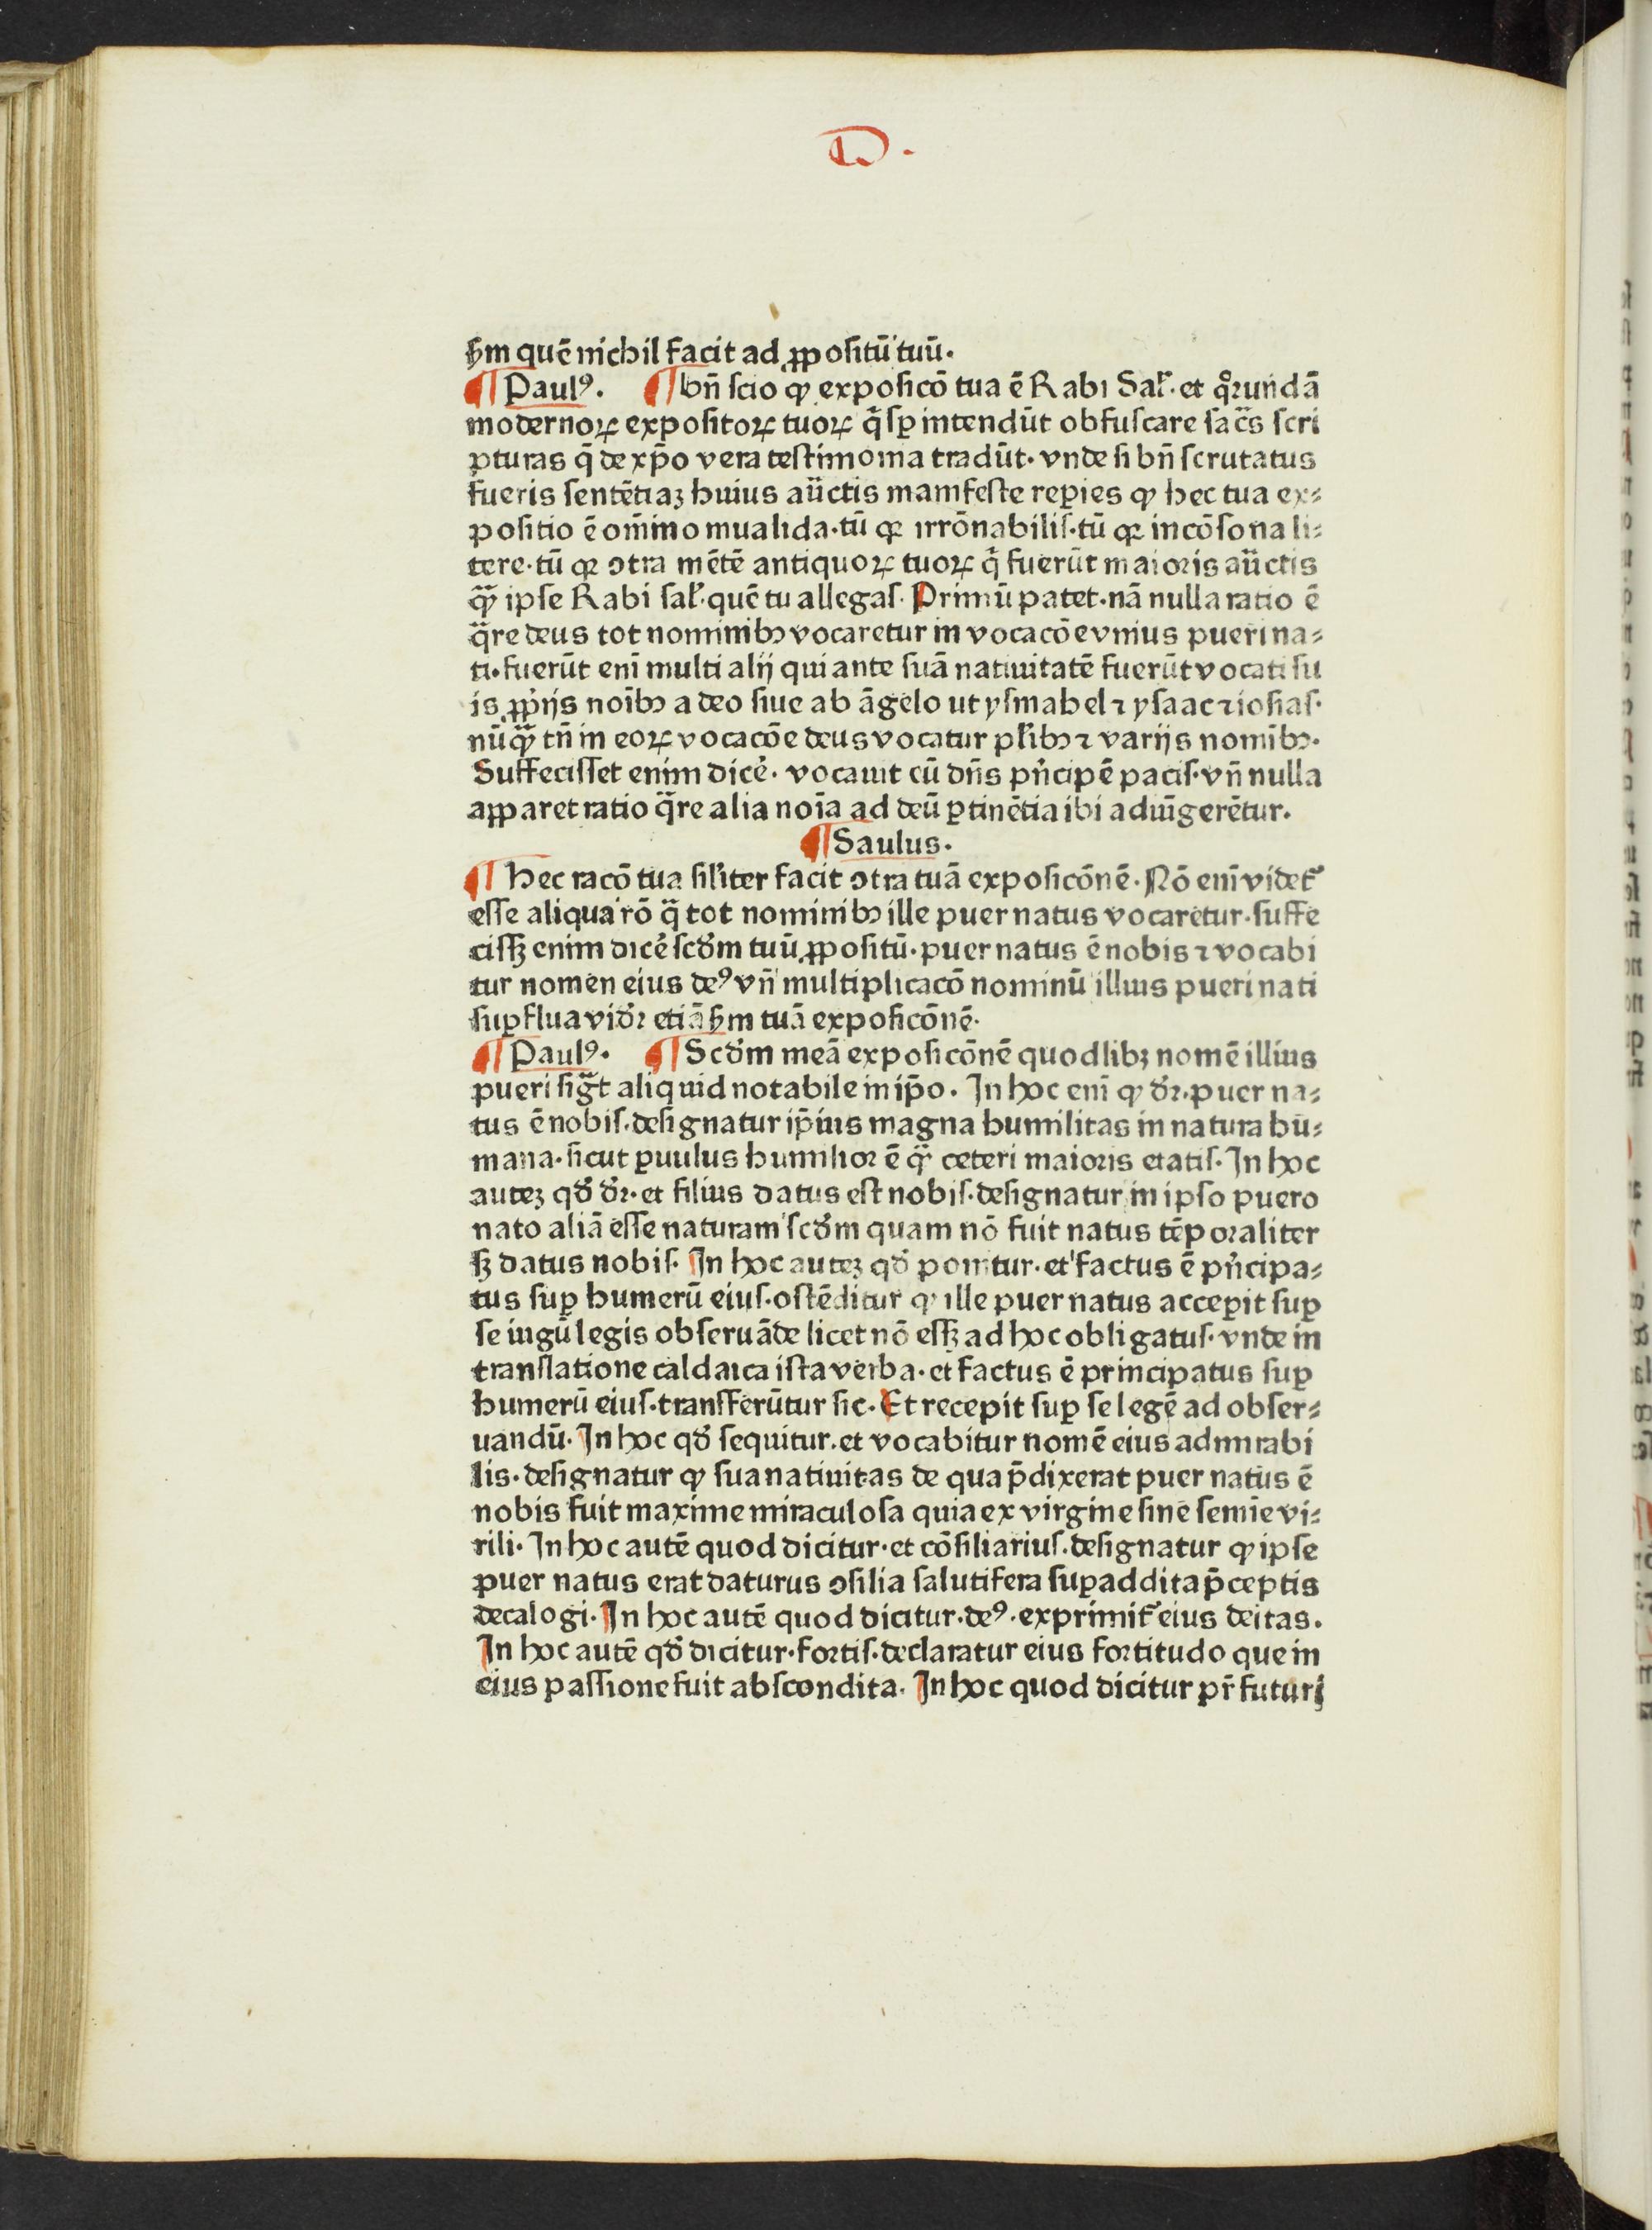 D.
ẜm quē nichil facit ad ꝓpositū tuū.
¶ Paulꝰ. ¶ bn̄ scio ꝙ exposicō tua ē Rabi Sal̕. et qͦrundā
modernoꝝ expositoꝝ tuoꝝ q̄ sꝑ intendūt obfuscare sac̄s scri
pturas q̄ de xp̄o vera testimonia tradūt. vnde si bn̄ scrutatus
fueris sentētiaꝫ huius auctͣis manifeste reꝑies ꝙ hec tua ex⸗
positio ē om̄ino inualida. tū qꝛ irrōnabilis. tū qꝛ incōsona li⸗
tere. tū qꝛ ↄtra mētē antiquoꝝ tuoꝝ qͥ fuerūt maioris auctͣis
ꝙͣ ipse Rabi sal̕. quē tu allegas. Primū patet. nā nulla ratio ē
qͣre deus tot nominibꝫ vocaretur in vocacōe vnius pueri na⸗
ti. fuerūt enī multi alij qui ante suā natiuitatē fuerūt vocati su
is ꝓpͥijs noībꝫ a deo siue ab āgelo ut ysmahel ⁊ ysaac ⁊ iosias.
nūꝙͣ tn̄ in eoꝝ vocacōe deus vocatur pl̕ibꝫ ⁊ varijs nomībꝫ.
Suffecisset enim dicē. vocauit eū dn̄s pͥncipē pacis. vn̄ nulla
apparet ratio qͣre alia noīa ad deū ꝑtinētia ibi adiūgerētur.
¶ Saulus.
¶ hec racō tua sil̕iter facit ↄtra tuā exposicōnē. Nō enī videt᷑
esse aliqua rō qͣ tot nominibꝫ ille puer natus vocaretur. suffe
cissꝫ enim dicē scd̕m tuū ꝓpositū. puer natus ē nobis ⁊ vocabi
tur nomen eius deꝰ vn̄ multiplicacō nominū illius pueri nati
suꝑflua vid̕ꝛ etiā ẜm tuā exposicōnē.
¶ Paulꝰ. ¶ Scd̕m meā exposicōnē quodlibꝫ nomē illius
pueri sigͣt aliquid notabile in ip̄o. In hoc enī ꝙ d̕ꝛ. puer na⸗
tus ē nobis. designatur ip̄ius magna humilitas in natura hu⸗
mana. sicut ꝑuulus humilior ē ꝙͣ ceteri maioris etatis. In hoc
auteꝫ qd̕ d̕ꝛ. et filius datus est nobis. designatur in ipso puero
nato aliā esse naturam scd̕m quam nō fuit natus tēporaliter
sꝫ datus nobis. In hoc auteꝫ qd̕ ponitur. et factus ē pͥncipa⸗
tus suꝑ humerū eius. ostēditur ꝙ ille puer natus acceꝑit suꝑ
se iugū legis obseruāde licet nō essꝫ ad hoc obligatus. vnde in
translatione caldaica ista verba. et factus ē principatus suꝑ
humerū eius. transferūtur sic. Et recepit suꝑ se legē ad obser⸗
uandū. In hoc qd̕ sequitur. et vocabitur nomē eius admirabi
lis. designatur ꝙ sua natiuitas de qua p̄dixerat puer natus ē
nobis fuit maxime miraculosa quia ex virgine sine semīe vi⸗
rili. In hoc autē quod dicitur. et cōsiliarius. designatur ꝙ ipse
puer natus erat daturus ↄsilia salutifera suꝑaddita p̄ceptis
decalogi. In hoc autē quod dicitur. deꝰ. exprimit᷑ eius deitas.
In hoc autē qd̕ dicitur. fortis. declaratur eius fortitudo que in
eius passione fuit abscondita. In hoc quod dicitur pr̄ futuri